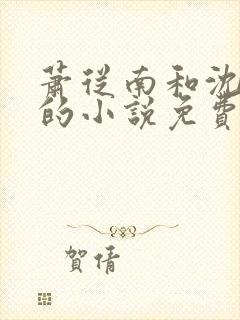 蕭從南和沈
的小說免費
賀倩